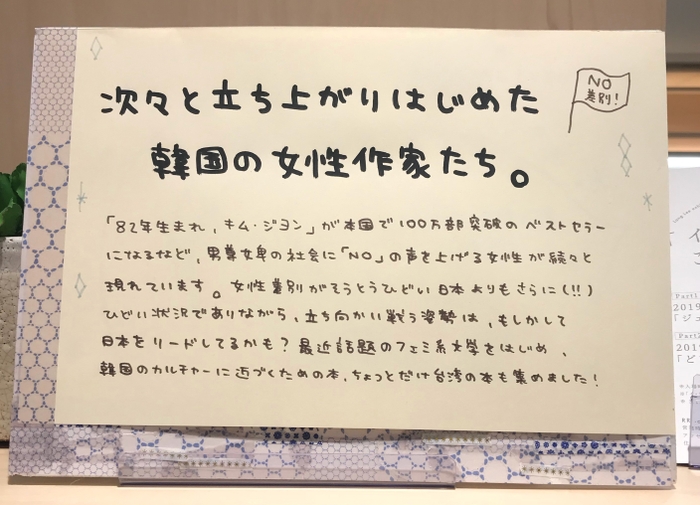 次々と立ち上がりはじめた
NO
差別!
韓国の女性作家たち。
「82年生まれ、キム・ジヨン」が本国で100万部突破のベストセラー
になるなど、男尊女卑の社会に「NO」の声を上げる女性が続々と
現れています。女性差別がそうとうひどい日本よりもさらに(!!)
ひどい状況でありながら、立ち向かい戦う姿勢は、もしかして
日本をリードしてるかも?最近話題のフェミ系文学をはじめ、
韓国のカルチャーに近づくための本、ちょっとだけ台湾の本も集めました!
Part1
2019
「ジュ
Part2
2019
「ど